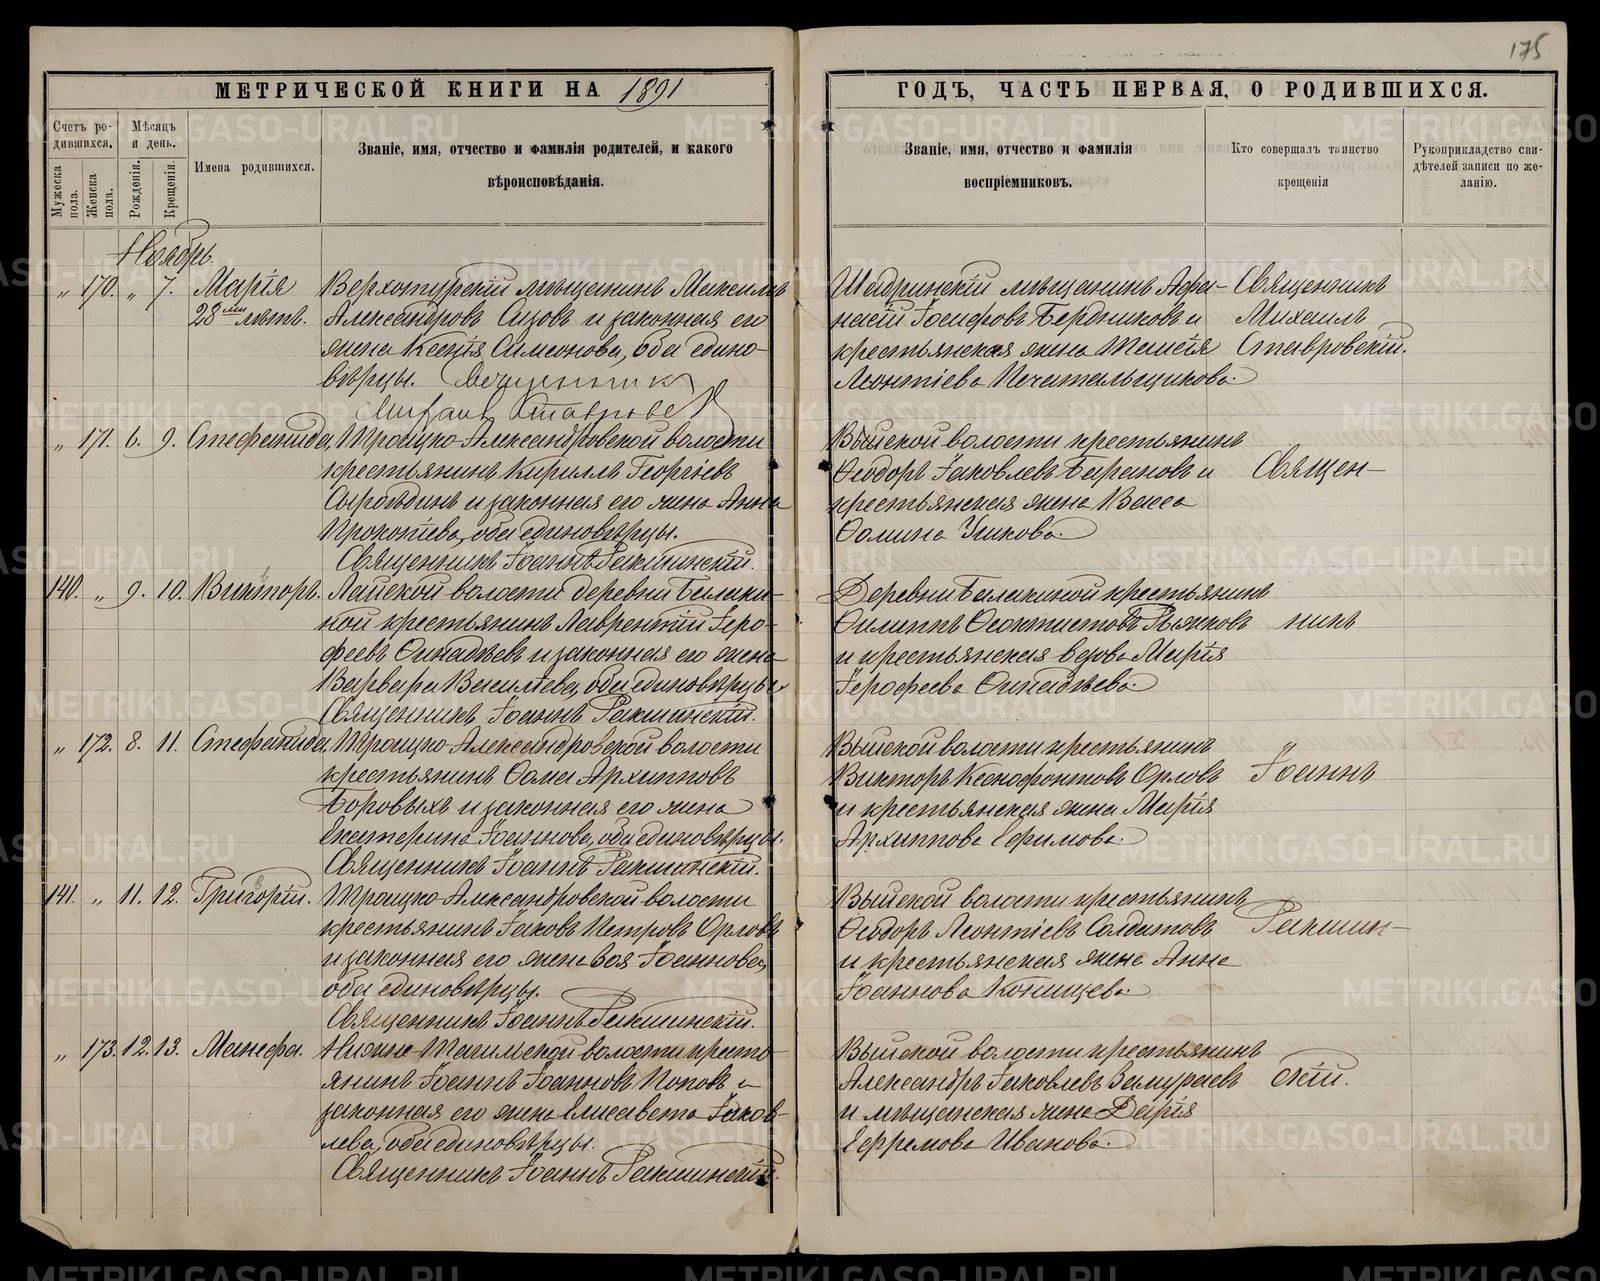 175
МЕТРИЧЕСКОЙ КНИГИ НА 1891
ГОДЪ, ЧАСТЬ ПЕРВАЯ, О РОДИВШИХСЯ.
Счетъ родившихся.
Мужеска пола.
Женска пола.
Мѣсяцъ и день.
Рожденія.
Крещенія.
Имена родившихся.
Званіе, имя, отчество и фамилія родителей, и какого
вѣроисповѣданія.
Званіе, имя, отчество и фамилія
воспріемниковъ.
Кто совершалъ таинство
крещенія
Рукоприкладство сви-
дѣтелей записи по же-
ланію.
Ноябрь.
„ 170. „ 7. Марія
28 ми лѣтъ.
Верхотурскій мѣщанинъ Максимъ
Александровъ Сизовъ и законная его
жена Ксенія Симеонова, оба едино-
вѣрцы. Священникъ
Михаилъ Ставровскій
Шадринскій мѣщанинъ Афа-
насій Іосифовъ Бердниковъ и
крестьянская жена Таисія
Леонтіева Печатальщикова.
Священникъ
Михаилъ
Ставровскій.
„ 171. 6. 9. Стефанида.
Троицко-Александровской волости
крестьянинъ Кириллъ Георгіевъ
Сыроѣдинъ и законная его жена Анна
Прокопіева, оба единовѣрцы.
Священникъ Іоаннъ Ракшинскій.
Выйской волости крестьянинъ
Ѳеодоръ Іаковлевъ Барановъ и
крестьянская жена Васса
Ѳомина Ушкова.
Священ-
140. „ 9. 10. Викторъ.
Лайской волости деревни Балаки-
ной крестьянинъ Лаврентій Іеро-
феевъ Ѳинадѣевъ и законная его жена
Варвара Василіева, оба единовѣрцы.
Священникъ Іоаннъ Ракшинскій.
Деревни Балакиной крестьянинъ
Ѳилиппъ Ѳеоктистовъ Рыжковъ
и крестьянская вдова Марія
Іерофеева Ѳинадѣева.
никъ
„ 172. 8. 11. Стефанида.
Троицко-Александровской волости
крестьянинъ Ѳома Архипповъ
Боровыхъ и законная его жена
Екатерина Іоаннова, оба единовѣрцы.
Священникъ Іоаннъ Ракшинскій.
Выйской волости крестьянинъ
Викторъ Ксенофонтовъ Орловъ
и крестьянская жена Марія
Архиппова Ефимова.
Іоаннъ
141. „ 11. 12. Григорій.
Троицко-Александровской волости
крестьянинъ Іаковъ Петровъ Орловъ
и законная его жена Зоя Іоаннова,
оба единовѣрцы.
Священникъ Іоаннъ Ракшинскій.
Выйской волости крестьянинъ
Ѳеодоръ Леонтіевъ Солдатовъ
и крестьянская жена Анна
Іоаннова Копищева.
Ракшин-
„ 173. 12. 13. Манефа.
Нижне-Тагильской волости кресть-
янинъ Іоаннъ Іоанновъ Поповъ и
законная его жена Елисавета Іаков-
лева, оба единовѣрцы.
Священникъ Іоаннъ Ракшинскій.
Выйской волости крестьянинъ
Александръ Іаковлевъ Замураевъ
и мѣщанская жена Дарія
Ефремова Иванова.
скій.
METRIKI.GASO-URAL.RU